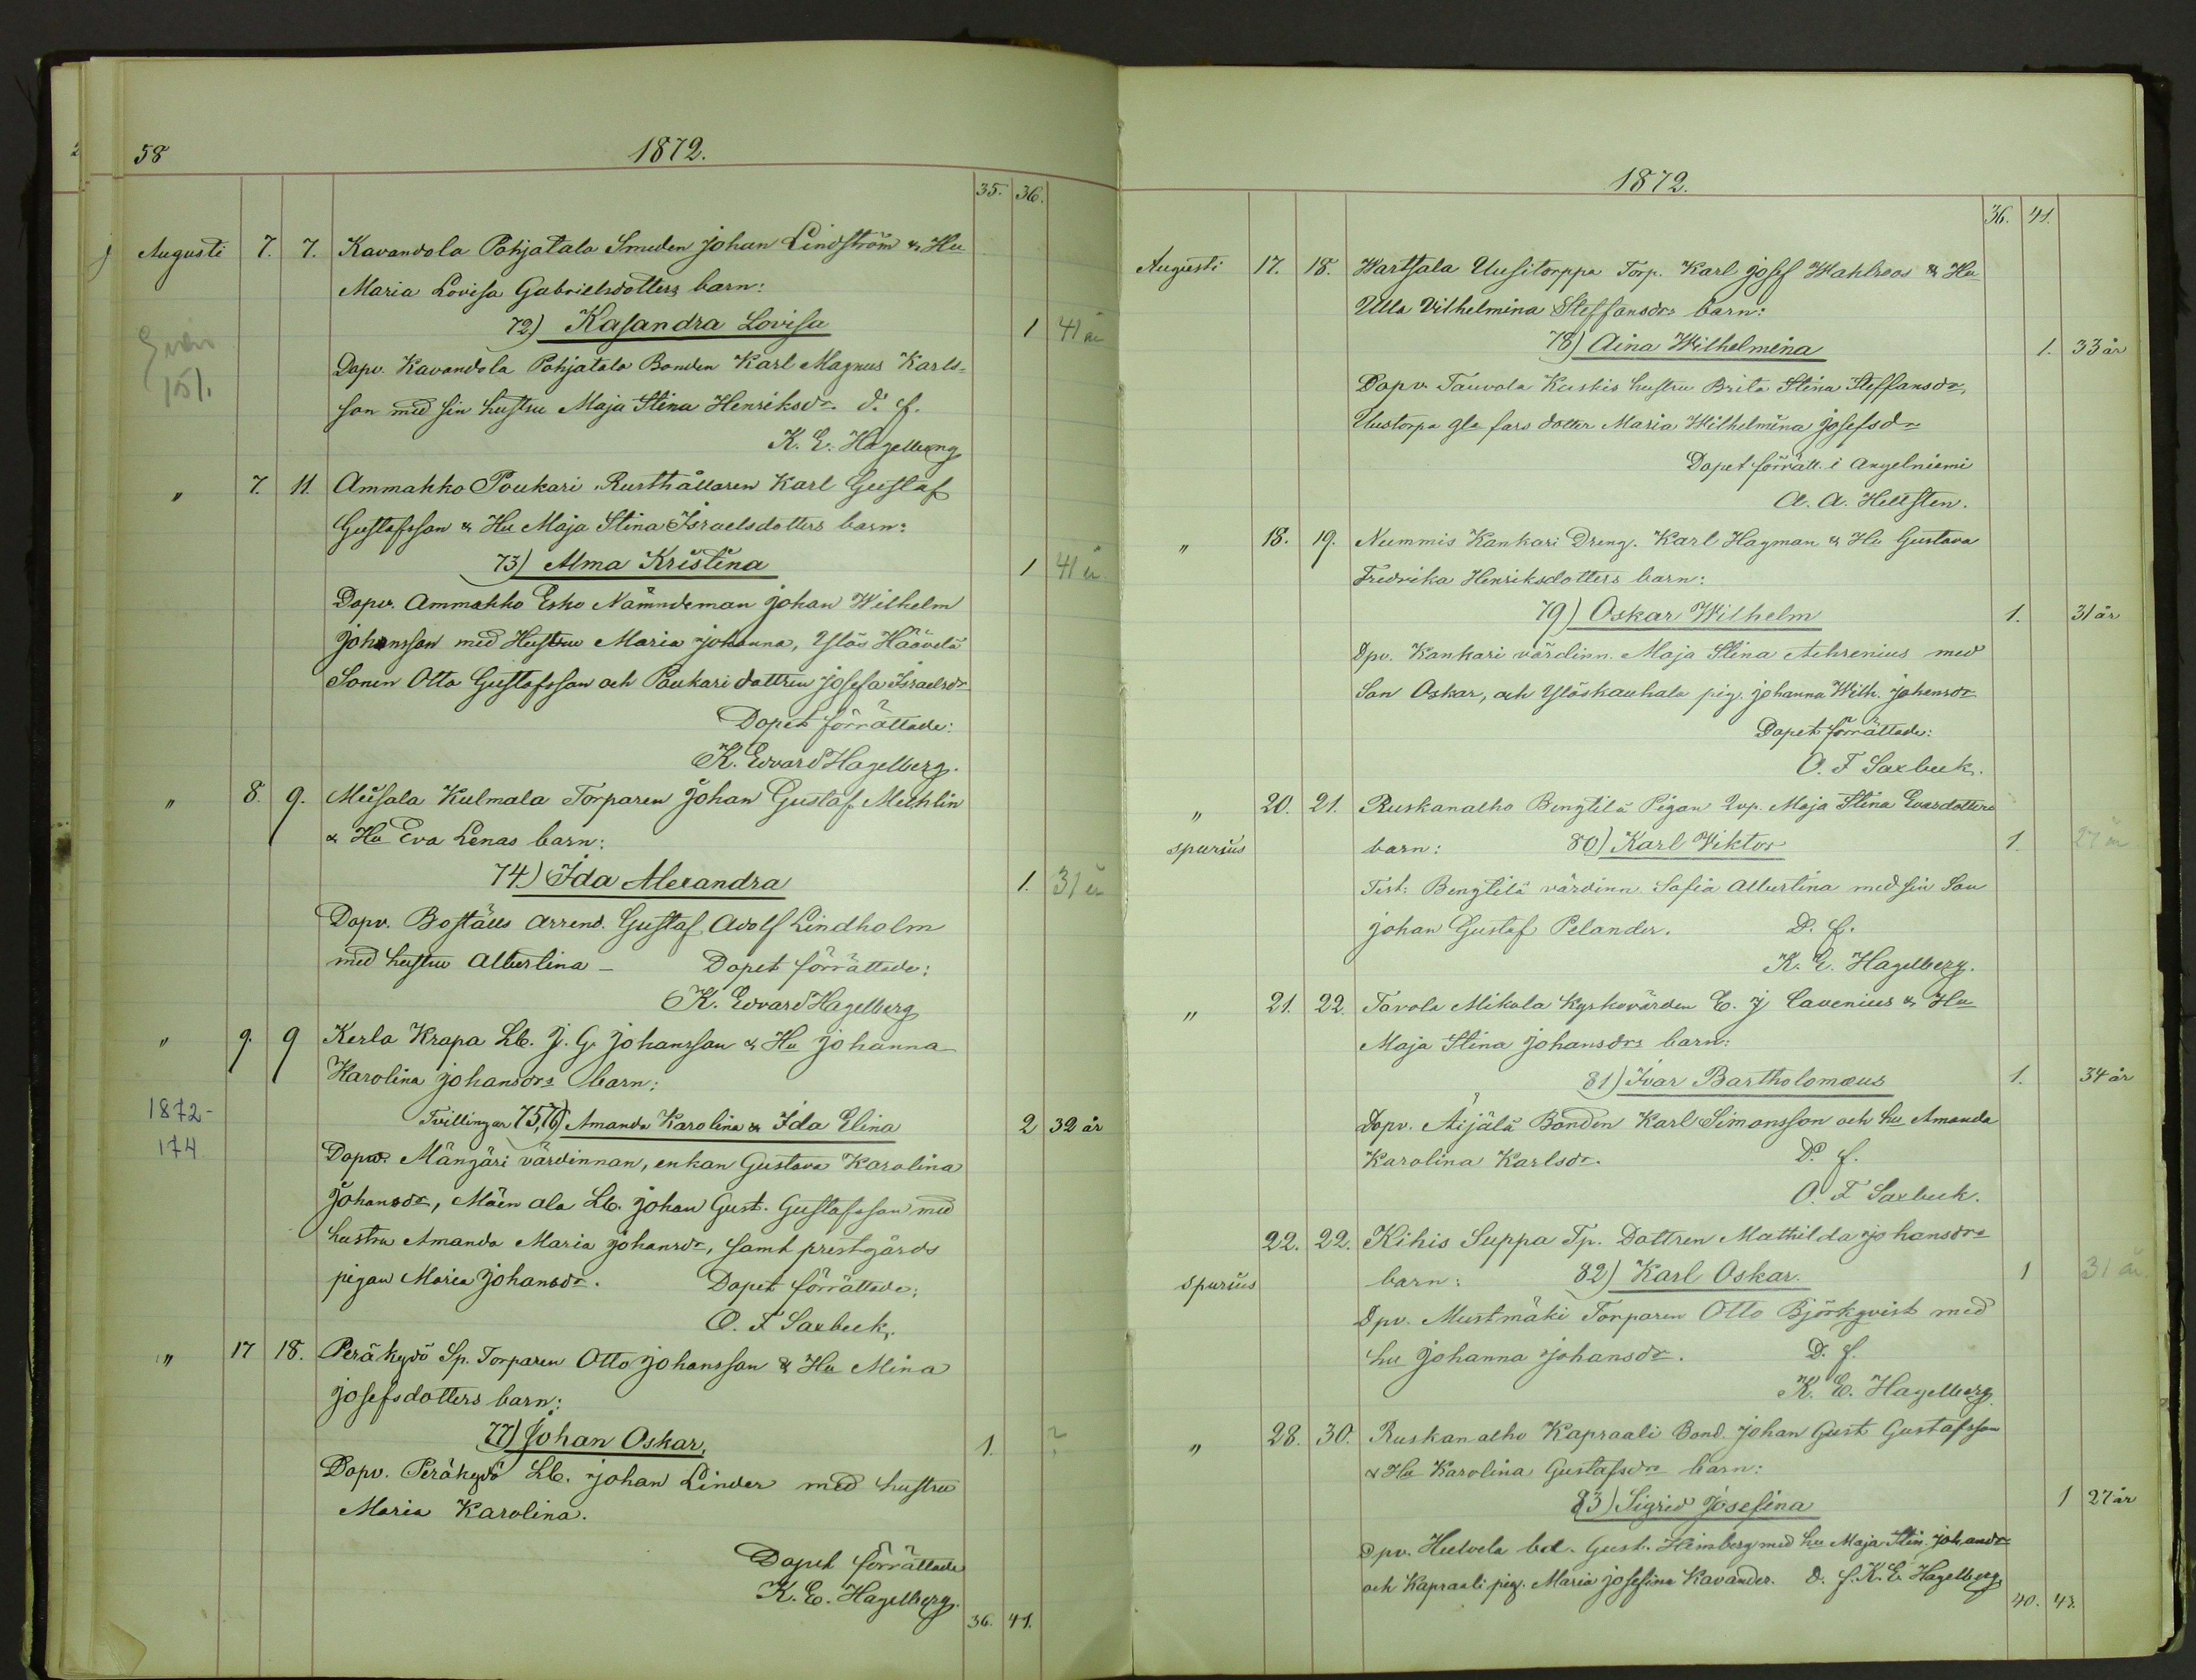 58
1872.
35. 36.
Augusti 7. 7. Kavandola Pohjatalo Smeden Johan Lindström & Hu
Maria Lovisa Gabrielsdotters barn:
72) Kasandra Lovisa 1 41 år
Dopv. Kavandola Pohjatalo Bonden Karl Magnus Karls-
son med sin hustru Maja Stina Henriksdr. d. f.
K. E. Hagelberg
151.
" 7. 11. Ammakko Poukari Rusthållaren Karl Gustaf
Gustafsson & Hu Maja Stina Israelsdotters barn:
73) Alma Kristina 1 41 år.
Dopv. Ammakko Esko Nämndeman Johan Wilhelm
Johansson med Hustru Maria Johanna, Ylös Häävelä
Sonen Otto Gustafsson och Poukari dottren Josefa Israelsdr
Dopet förrättade:
K. Edvard Hagelberg.
" 8. 9. Meisala Kulmala Torparen Johan Gustaf Mechlin
& Hu Eva Lenas barn:
74) Ida Alexandra 1. 31 år
Dopv. Boställs arrend. Gustaf Adolf Lindholm
med hustru Albertina - Dopet förrättade:
K. Edvard Hagelberg
" 9. 9 Kerla Krapa Lb. J. G. Johansson & Hu Johanna
Karolina Johansdrs barn:
1872-
174
Tvillingar 75,76) Amanda Karolina & Ida Elina 2 32 år
Dopv. Mängäri värdinnan, enkan Gustava Karolina
Johansdr, Mäen ala Lb. Johan Gust. Gustafsson med
hustru Amanda Maria Johansdr, samt prestgårds
pigan Maria Johansdr. Dopet förrättade:
O. F. Saxbeck.
" 17 18. Peräkydö Sp. Torparen Otto Johansson & Hu Mina
Josefsdotters barn:
77) Johan Oskar, 1. ?
Dopv. Peräkydö Lb. Johan Linder med hustru
Maria Karolina.
Dopet förrättade
K. E. Hagelberg.
36. 41.
1872.
36. 41.
Augusti 17. 18. Wartsala Uusitorppa Torp. Karl Josef Wahlroos & Hu
Ulla Vilhelmina Steffansdrs barn:
78) Aina Wilhelmina 1. 33 år
Dopv. Tauvola Kuskis hustru Brita Stina Steffansdr,
Uustorpa gla fars dotter Maria Wilhelmina Josefsdr
Dopet förrätt. i Angelniemi
A. A. Hellsten.
" 18. 19. Nummis Kankari Dreng. Karl Hagman & Hu Gustava
Fredrika Henriksdotters barn:
79) Oskar Wilhelm 1. 31 år
Dpv. Kankari värdinn. Maja Stina Aehrenius med
Son Oskar, och Ylöskauhala pig. Johanna Wilh. Johansdr
Dopet förrättade:
O. F Saxbeck.
" 20. 21. Ruskanalho Bengtilä Pigan Qvp. Maja Stina Evasdotters
spurius barn: 80) Karl Viktor 1. 27 år
Test: Bengtilä värdinn Sofia Albertina med sin Son
Johan Gustaf Pelander. D. f.
K. E. Hagelberg.
" 21. 22. Tavola Mikola Kyrkovärden E. J Cavenius & Hu
Maja Stina Johansdrs barn:
81) Ivar Bartholomæus 1. 34 år
Dopv. Aijälä Bonden Karl Simonsson och hu Amanda
Karolina Karlsdr. D. f.
O. F Saxbeck.
22. 22. Kihis Suppa Tp. Dottren Mathilda Johansdrs
spurius barn: 82) Karl Oskar. 1 31 år.
Dpv. Mustmäki Torparen Otto Björkqvist med
hu Johanna Johansdr. D. f.
K. E. Hagelberg.
" 28. 30. Ruskanalho Kapraali Bond. Johan Gust Gustafsson
& Hu Karolina Gustafsdrs barn:
83) Sigrid Josefina 1 27 år
Dpv. Hulvela bd. Gust. Heimberg med hu Maja Stin. Johansdr
och Kapraali pig. Maria Josefina Kavander. D. f. K. E. Hagelberg.
40. 43.